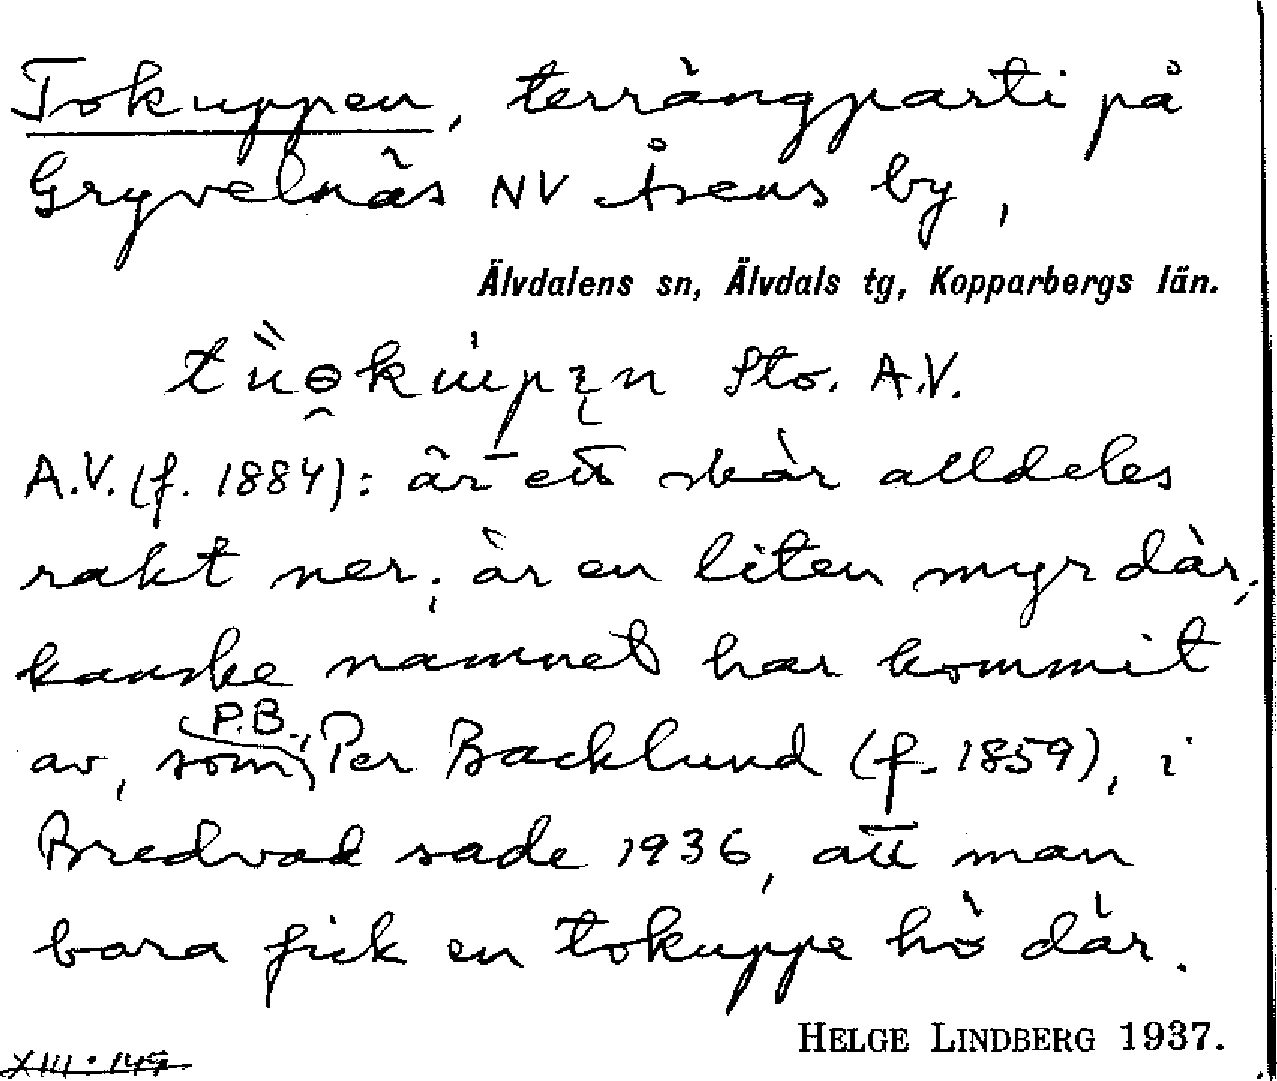 Tokuppen, terrängparti på
Gryvelnäs NV Åsens by,
Älvdalens sn, Älvdals tg, Kopparbergs län.
Sto. A.V.
A.V. (f. 1884): är ett skär alldeles
rakt ner; är en liten myr där,
kanske namnet har kommit
av, som P.B., Per Backlund (f. 1859), i
Bredvad sade 1936, att man
bara fick en tokuppe hö där.
HELGE LINDBERG 1937.
XIII:149